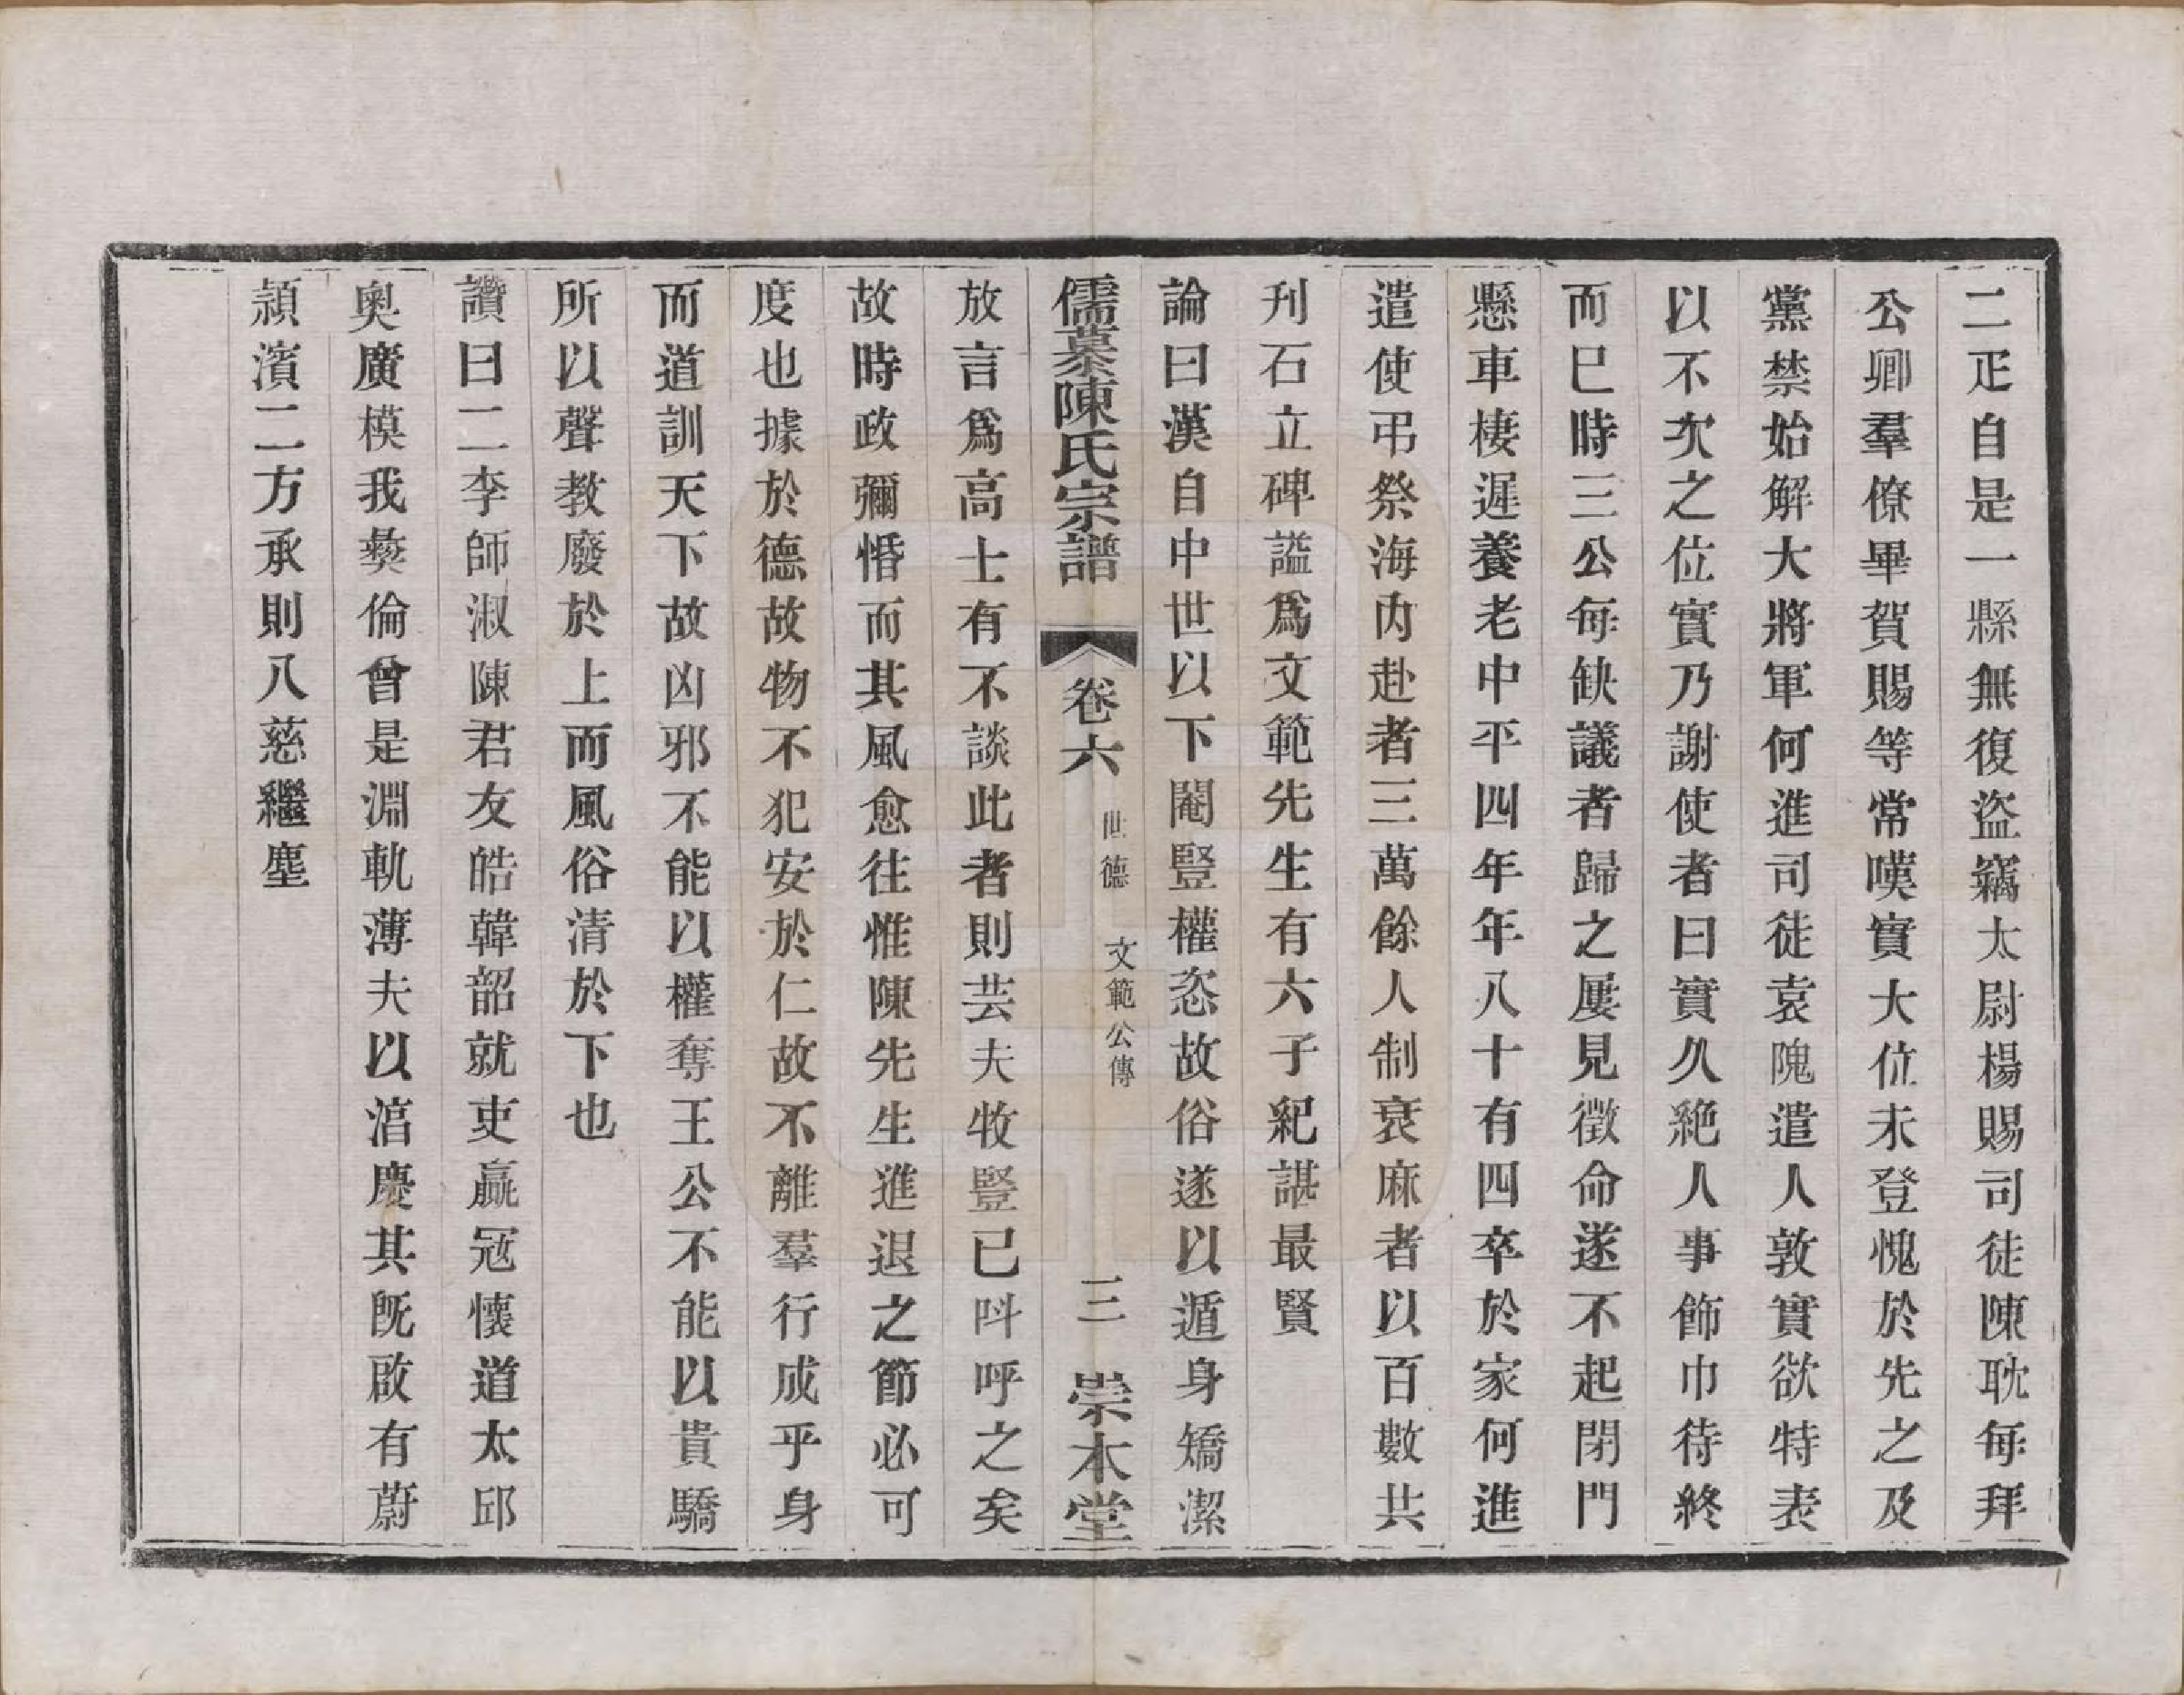 二疋自是一縣無復盜竊太尉楊賜司徒陳耽每拜
公卿羣僚畢賀賜等常嘆實大位未登愧於先之及
黨禁始解大將軍何進司徒袁隗遣人敦實欲特表
以不次之位實乃謝使者曰實久絶人事飾巾待終
而已時三公每缺議者歸之屢見徵命遂不起閉門
懸車棲遲養老中平四年年八十有四卒於家何進
遣使弔祭海内赴者三萬餘人制衰麻者以百數共
刋石立碑謚爲文範先生有六子紀諶最賢
論曰漢自中世以下閹豎權恣故俗遂以遁身矯潔
儒慕陳氏宗譜 卷六 世德 文範公傳 三 崇本堂
放言爲高士有不談此者則芸夫牧豎已呌呼之矣
故時政彌惛而其風愈往惟陳先生進退之節必可
度也據於德故物不犯安於仁故不離羣行成乎身
而道訓天下故凶邪不能以權奪王公不能以貴驕
所以聲教廢於上而風俗清於下也
讚曰二李師淑陳君友皓韓韶就吏贏冦懷道太邱
奥廣模我彜倫曾是淵軌薄夫以淯慶其旣啟有蔚
頴濱二方承則八慈繼塵